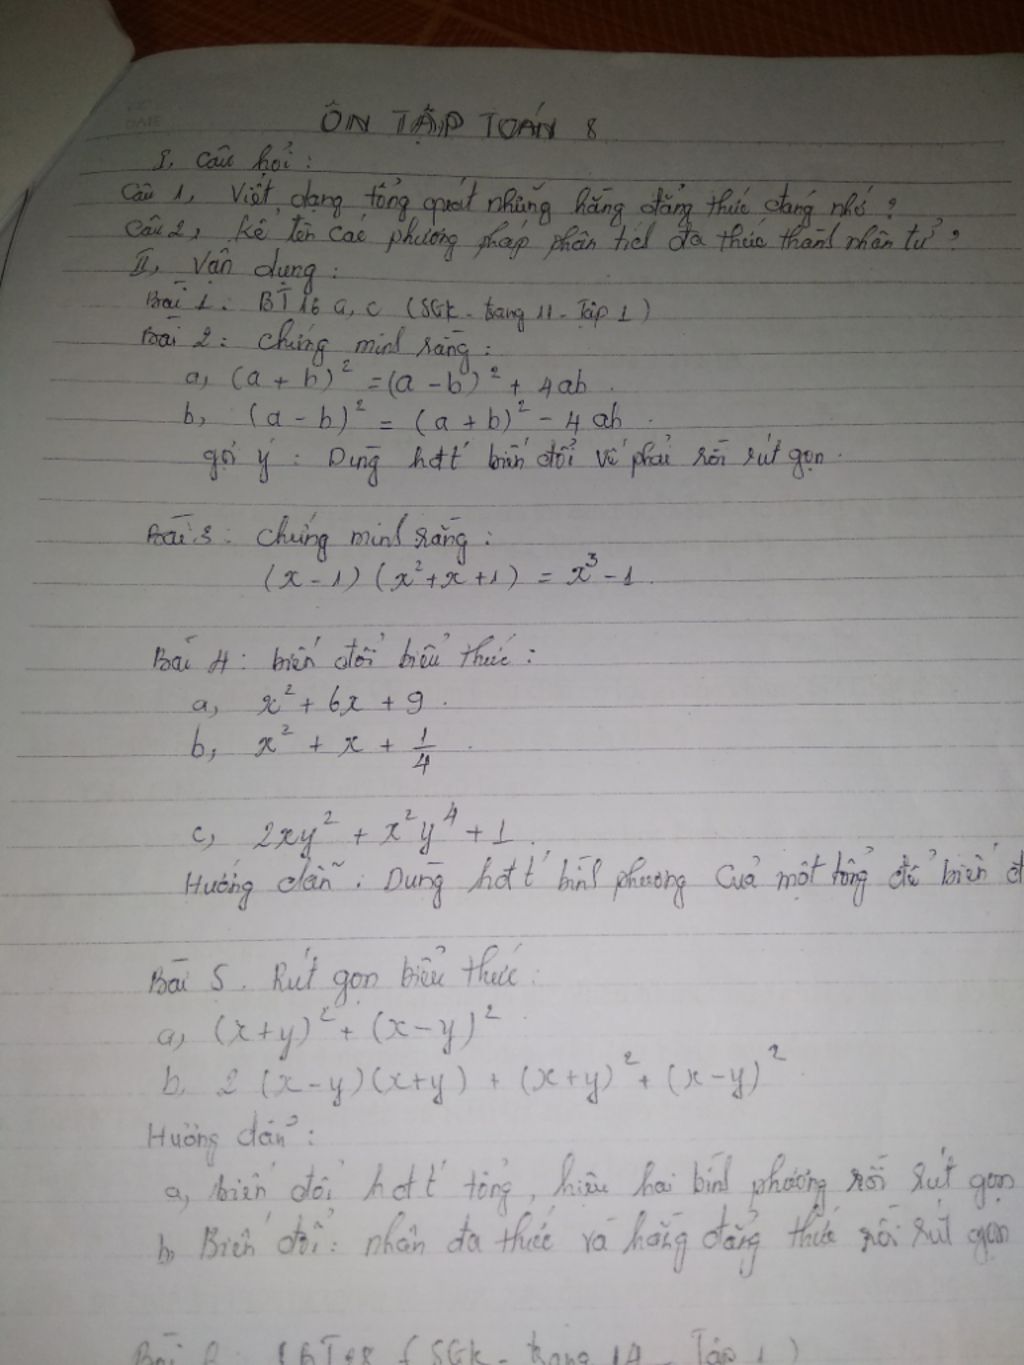 ÔN TẬP TOÁN 8
I, Câu hỏi:
Câu 1, Viết dạng tổng quát những hằng đẳng thức đáng nhớ?
Câu 2, kể tên các phương pháp phân tích đa thức thành nhân tử?
II, Vận dụng:
Bài 1: BT 16 a, c (SGK - trang 11 - Tập 1)
Bài 2: chứng minh rằng:
a, (a + b)² = (a - b)² + 4ab.
b, (a - b)² = (a + b)² - 4ab.
gợi ý: Dùng hđt biến đổi vế phải rồi rút gọn.
Bài 3: chứng minh rằng:
(x - 1) (x² + x + 1) = x³ - 1.
Bài 4: biến đổi biểu thức:
a, x² + 6x + 9.
b, x² + x + 1/4.
c, 2xy² + x²y⁴ + 1.
Hướng dẫn: Dùng hđt bình phương của một tổng để biến đ
Bài 5. Rút gọn biểu thức:
a, (x+y)² + (x-y)².
b, 2 (x-y)(x+y) + (x+y)² + (x-y)².
Hướng dẫn:
a, biến đổi hđt tổng, hiệu hai bình phương rồi rút gọn
b, Biến đổi: nhân đa thức và hằng đẳng thức rồi rút gọn
Bài (SGK - trang 14 - Tập 1)